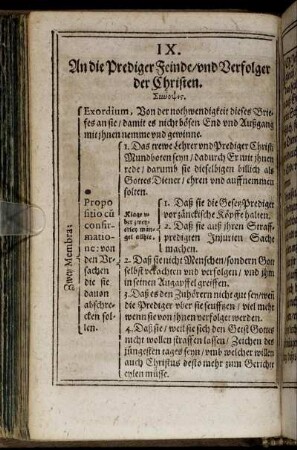 IX.
An die Prediger Feinde/vnd Verfolger
der Christen.
Σύνοψις.
Exordium, Von der nothwendigkeit dieses Brie-
fes an sie/ damit es nicht bösen End vnd Außgang
mit jhnen nemme vnd gewinne.
Zwey Membra:
Propo
sitio cū
confir-
matio-
ne: von
den Vr-
sachen
die sie
dauon
abschre-
cken sol-
len.
1. Das trewe Lehrer vnd Prediger Christi
Mundboten seyn/ dadurch Er mit jhnen
rede/ darumb sie dieselbigen billich als
Gottes Diener/ ehren vnd auffnemmen
solten.
Klage v-
ber zweyer-
ley män-
gel allhie.
1. Daß sie die Gesetz Prediger
vor zänckische Köpffe halten.
2. Daß sie auß jhren Straff-
predigten Injurien Sache
machen.
2. Daß sie nicht Menschen/ sondern Gott
selbst verachten vnd verfolgen/ vnd jhm
in seinen Augapffel greiffen.
3. Daß es den Zuhörern nicht gut sey/ weñ
die Prediger vber sie seufften/ viel mehr
wenn sie von jhnen verfolget werden.
4. Daß sie/ weil sie sich den Geist Gottes
nicht wollen straffen lassen/ Zeichen des
jüngesten tages seyn/ vmb welcher willen
auch Christus desto mehr zum Gerichte
eylen müsse.